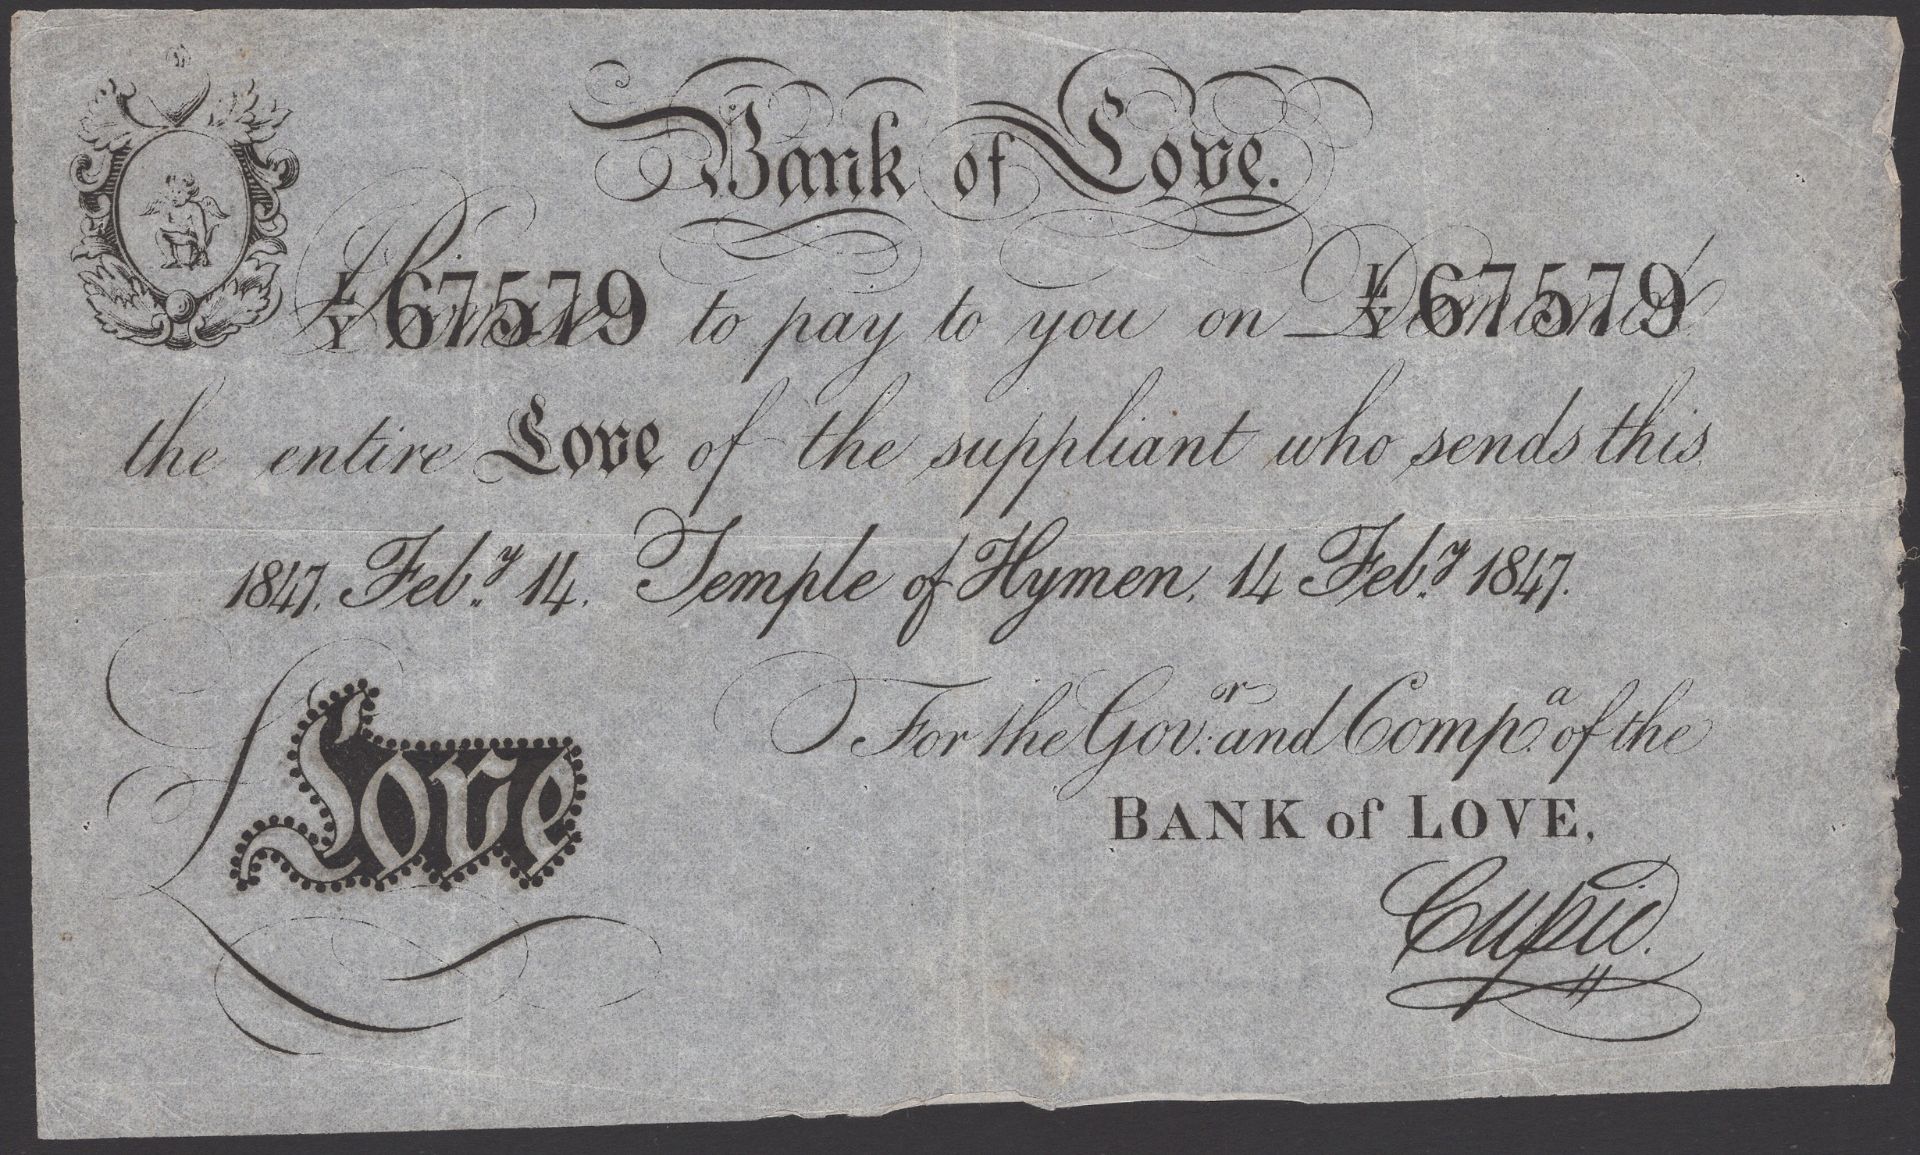 Bank of Love.
I Promise to pay to you on Demand
L/Y 67579 L/Y 67579
the entire Love of the suppliant who sends this
1847. Feb.y 14. Temple of Hymen, 14 Feb.y 1847.
For the Gov.r and Comp.a of the
BANK of LOVE,
Love
Cupid.